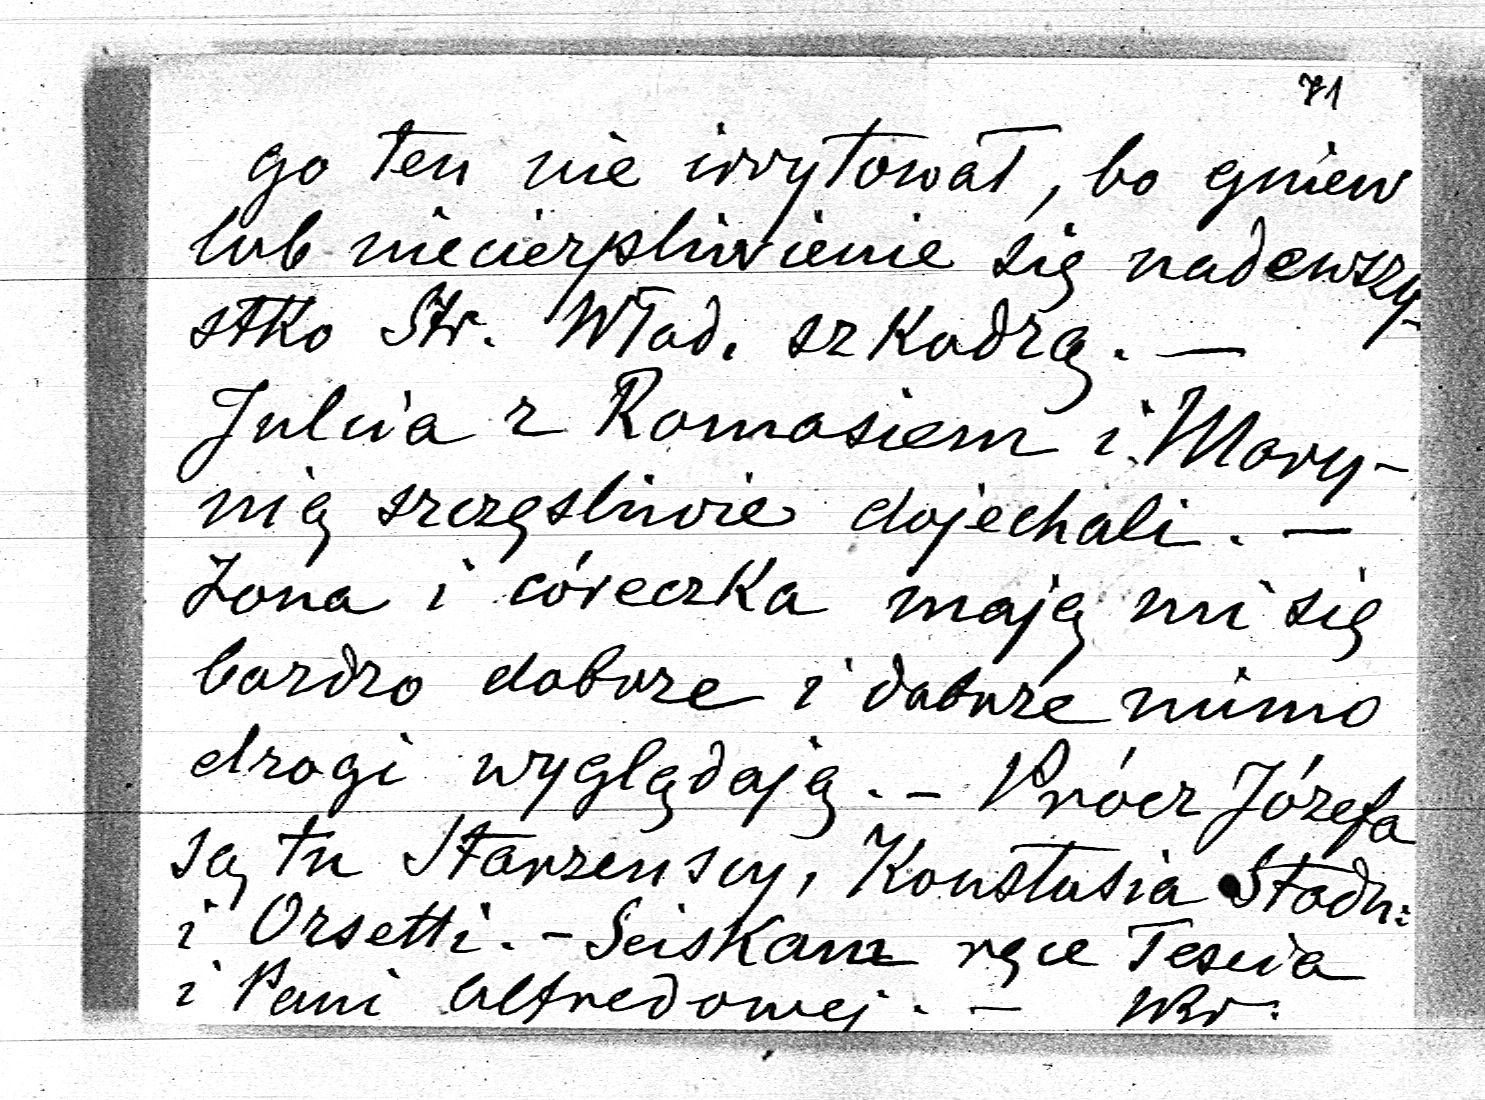 71
go ten nie irrytował, bo gniew
lub niecierpliwienie się nadewszy-
stko Str. Wład. szkodzą. —
Julcia z Romasiem i Mary-
nią szczęsliwie dojechali. —
Żona i córeczka mają mi się
bardzo dobrze i dobrze mimo
drogi wyglądają. — Prócz Józefa
są tu Starzenscy, Konstusia Stadn:
i Orsetti. — Sciskam ręce Tescia
i Pani Alfredowej. —